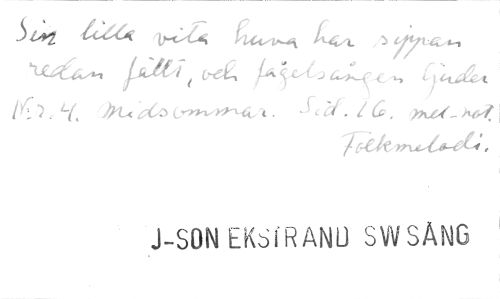 Sin lilla vita huva har sippan
redan fällt, och fågelsången ljuder
Nr. 4. Midsommar. Sid. 16. mel-not.
Folkmelodi.
J-SON EKSTRAND SWSÅNG